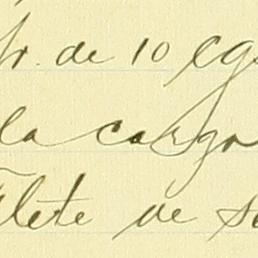 de 10 cg
la cargo
Flete de s